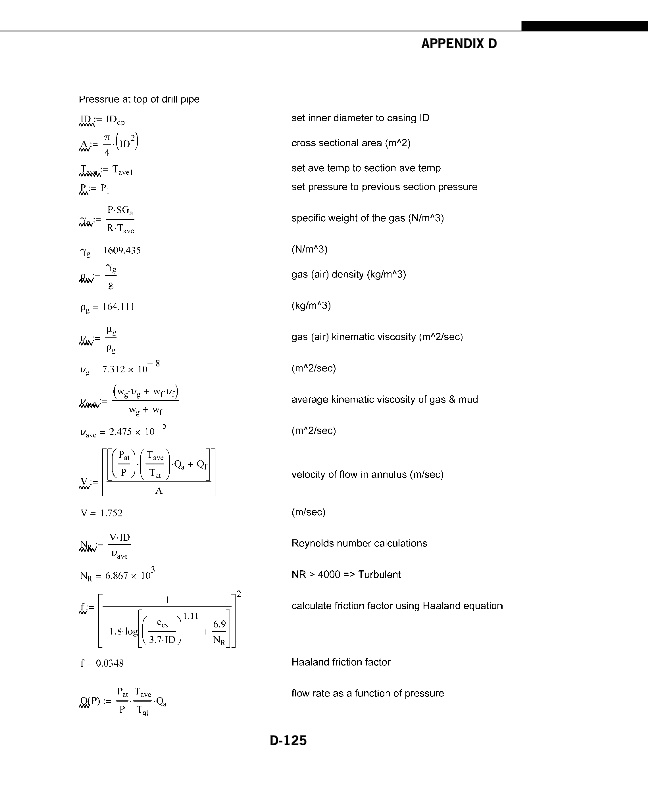 APPENDIX D
Pressrue at top of drill pipe
set inner diameter to casing ID
A := π/4 · (ID^2) cross sectional area (m^2)
T_ave := T_ave1 set ave temp to section ave temp
set pressure to previous section pressure
γ_g := P·SG_a / R·T_ave specific weight of the gas (N/m^3)
γ_g = 1609.435 (N/m^3)
ρ_g := γ_g / g gas (air) density (kg/m^3)
ρ_g = 164.111 (kg/m^3)
υ_g := μ_g / ρ_g gas (air) kinematic viscosity (m^2/sec)
υ_g = 7.312 × 10^-8 (m^2/sec)
υ_ave := (w_g·υ_g + w_f·υ_f) / w_g + w_f average kinematic viscosity of gas & mud
υ_ave = 2.475 × 10 (m^2/sec)
V := [[(P_at / P)·(T_ave / T_at)·Q_a + Q_f] / A] velocity of flow in annulus (m/sec)
V = 1.752 (m/sec)
N_R := V·ID / υ_ave Reynolds number calculations
N_R = 6.867 × 10^3 NR > 4000 => Turbulent
f := [1 / -1.8·log[( / 3.7·ID)^1.11 + 6.9 / N_R]]^2 calculate friction factor using Haaland equation
f = 0.0348 Haaland friction factor
Q(P) := P_at / P · T_ave / T_at · Q_a flow rate as a function of pressure
D-125